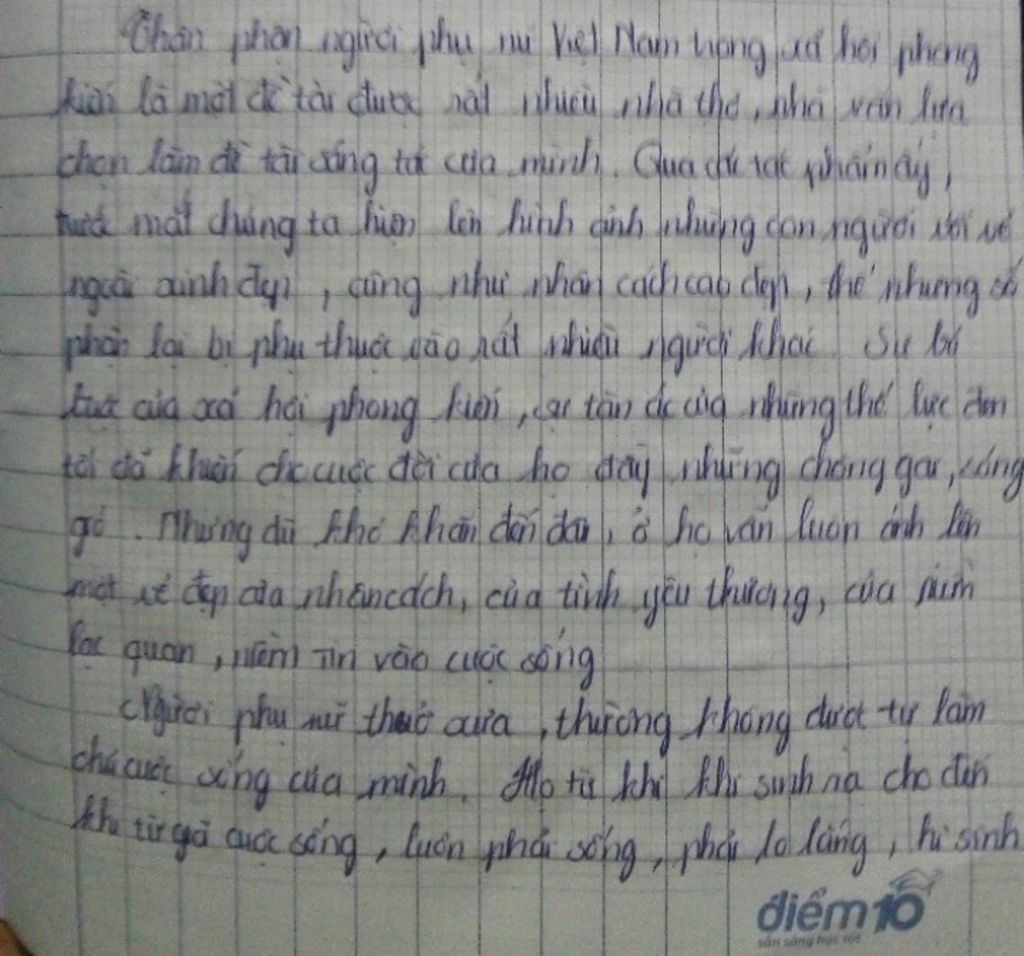 Thân phận người phụ nữ Việt Nam trong xã hội phong
kiến là một đề tài được rất nhiều nhà thơ, nhà văn lựa
chọn làm đề tài sáng tác của mình. Qua các tác phẩm ấy,
trước mắt chúng ta hiện lên hình ảnh những con người với vẻ
ngoài xinh đẹp, cũng như nhân cách cao đẹp, thế nhưng số
phận lại bị phụ thuộc vào rất nhiều người khác. Sự
của xã hội phong kiến, sự tàn ác của những thế lực đen
tối đã khiến cho cuộc đời của họ đầy những chông gai, sóng
gió. Nhưng dù khó khăn đến đâu, ở họ vẫn luôn ánh lên
một vẻ đẹp của nhân cách, của tình yêu thương, của niềm
lạc quan, niềm tin vào cuộc sống
Người phụ nữ thuở xưa, thường không được tự làm
chủ cuộc sống của mình. Họ từ khi khi sinh ra cho đến
khi từ giã cuộc sống, luôn phải sống, phải lo lắng, hi sinh
điểm10
sẵn sàng học tốt